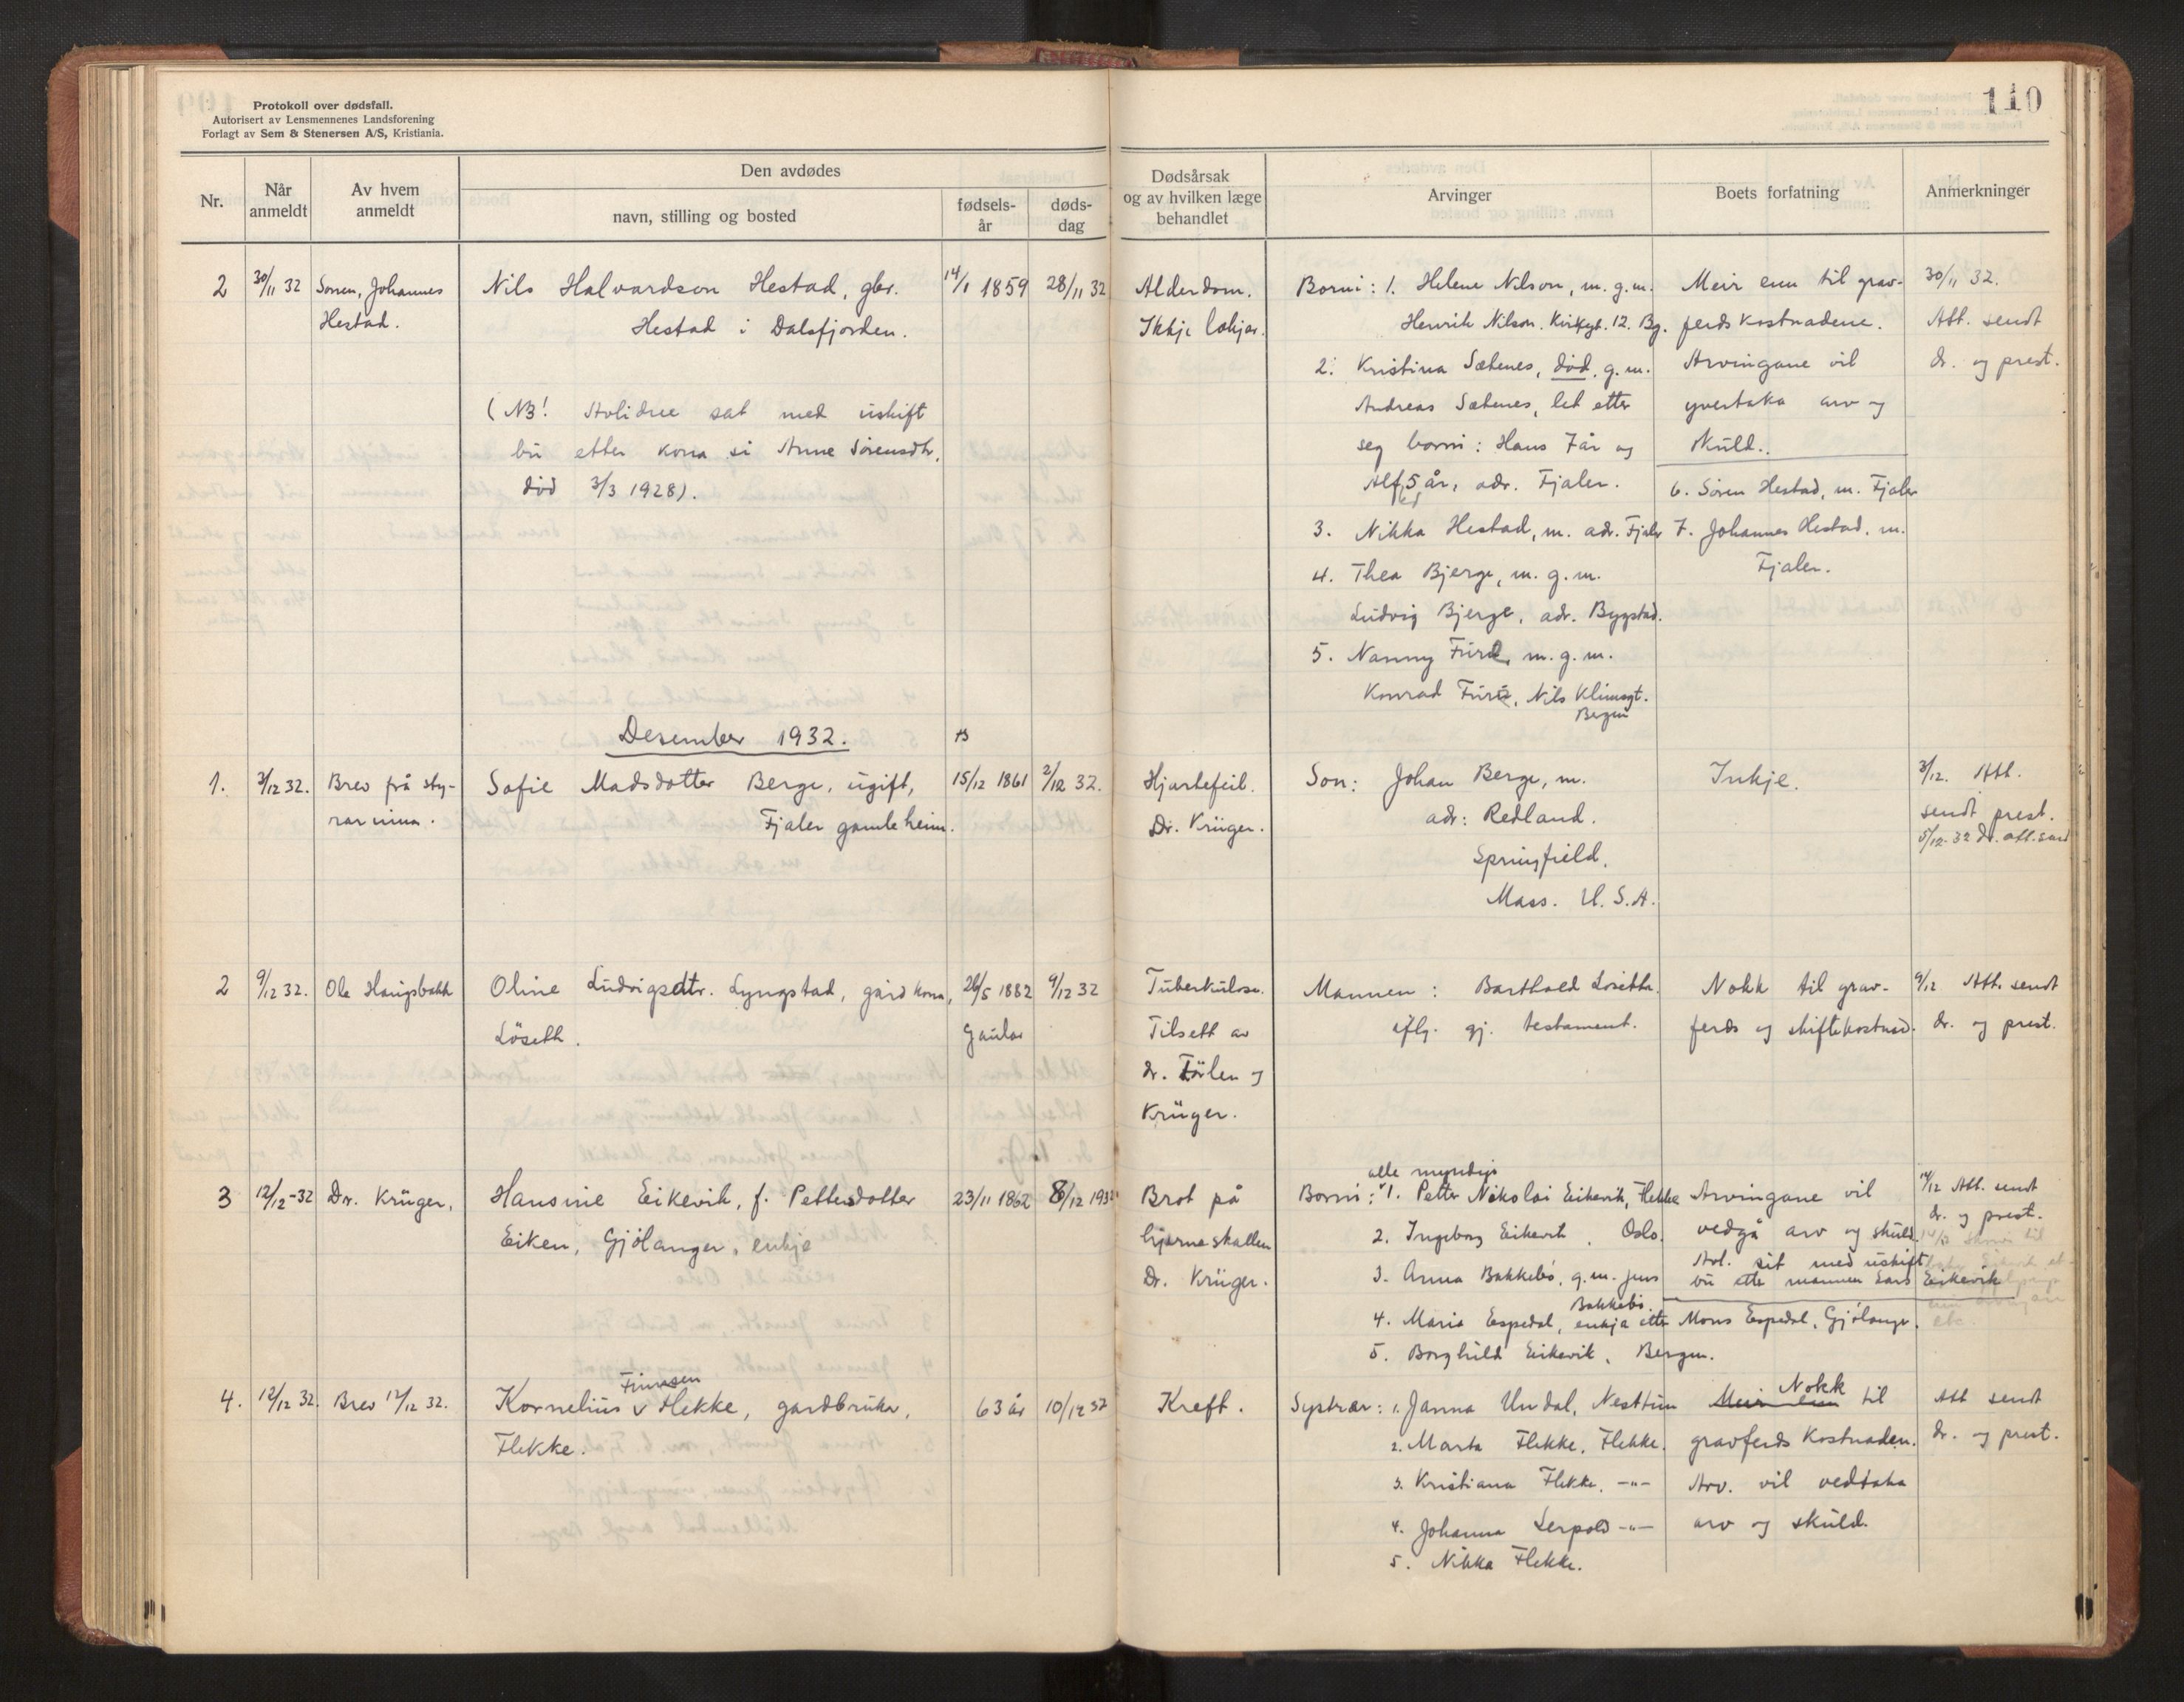 Protokoll over dødsfall.
Autorisert av Lensmennenes Landsforening
Forlagt av Sem & Stenersen A/S, Kristiania.
110
Nr.
Når anmeldt
Av hvem anmeldt
Den avdødes
navn, stilling og bosted
fødsels-år
døds-dag
Dødsårsak og av hvilken læge behandlet
Arvinger
Boets forfatning
Anmerkninger
2
30/11 32
Sonen, Johannes
Hestad.
Nils Halvardson Hestad, gbr.
Hestad i Dalsfjorden.
(NB! Avlidne sat med uskift
bu etter kona si Anne Sørensdtr,
død 3/3 1928).
14/1 1859
28/11 32
Alderdom.
Ikkje lækjar.
Borni: 1. Helene Nilson, m. g.m.
Henrik Nilson. Kirkegt. 12. Bg.
2. Kristina Sætenes, død, g.m.
Andreas Sætenes, let etter
seg borni: Hans 7 år og
Alf, 5 år, adr. Fjaler.
3. Nikka Hestad, m. adr. Fjaler
4. Thea Bjerge, m. g.m.
Ludvig Bjerge, adr. Bygstad.
5. Nanny Furå, m. g.m.
Konrad Furå, Nils Klimsgt.
Bergen
Meir enn til grav-
ferdskostnadene.
Arvingane vil
yvertaka arv og
skuld.
6. Søren Hestad, m. Fjaler
7. Johannes Hestad, m.
Fjaler.
30/11 32.
Att. sendt
dr. og prest.
Desember 1932.
1.
3/12 32.
Brev frå sty-
rarinna.
Sofie Madsdotter Berge, ugift,
Fjaler gamleheim.
15/12 1861
2/12 32.
Hjartefeil.
Dr. Krüger.
Son: Johan Berge, m.
adr: Redland.
Springfield.
Mass. U.S.A.
Inkje.
3/12. Att.
sendt prest.
5/12-32 dr. att. send
2
9/12 32.
Ole Haugsbakk
Oline Ludvigsdtr. Lyngstad, gardkona,
Løseth.
26/5 1882
Gaular
9/12 32
Tuberkulose.
Tilsett av
dr. Førlen og
Krüger.
Mannen: Barthold Løseth.
iflg. gj. testament.
Nokk til grav-
ferds og skiftekostnad.
9/12 Att. sendt
dr. og prest.
3
12/12-32
Dr. Krüger.
Hansine Eikevik, f. Pettersdotter
Eiken, Gjølanger, enkje
23/11 1862
8/12 1932
Brot på
hjerneskallen
Dr. Krüger.
alle myndige
Borni: 1. Petter Nikolai Eikevik, Flekke
2. Ingeborg Eikevik, Oslo.
3. Anna Bakkebø, g.m. Jens
Bakkebø.
4. Maria Espedal, enkja etter Mons Espedal, Gjølanger.
5. Borghild Eikevik, Bergen.
Arvingane vil
vedgå arv og skuld.
Avl. sit med uskift
bu etter mannen Lars Eikevik
14/12 Att. sendt
dr. og prest.
4.
12/12 32.
Brev 12/12 32.
Kornelius Finnsen Flekke, gardbrukar,
Flekke.
63 år
10/12 32
Kreft.
Systrar: 1. Janna Undal, Nesttun
2. Marta Flekke, Flekke.
3. Kristiana Flekke. -"-
4. Johanna Lerpold -"-
5. Nikka Flekke.
Meir enn Nokk til
gravferds kostnaden.
Arv. vil vedtaka
arv og skuld.
Att sendt
dr. og prest.